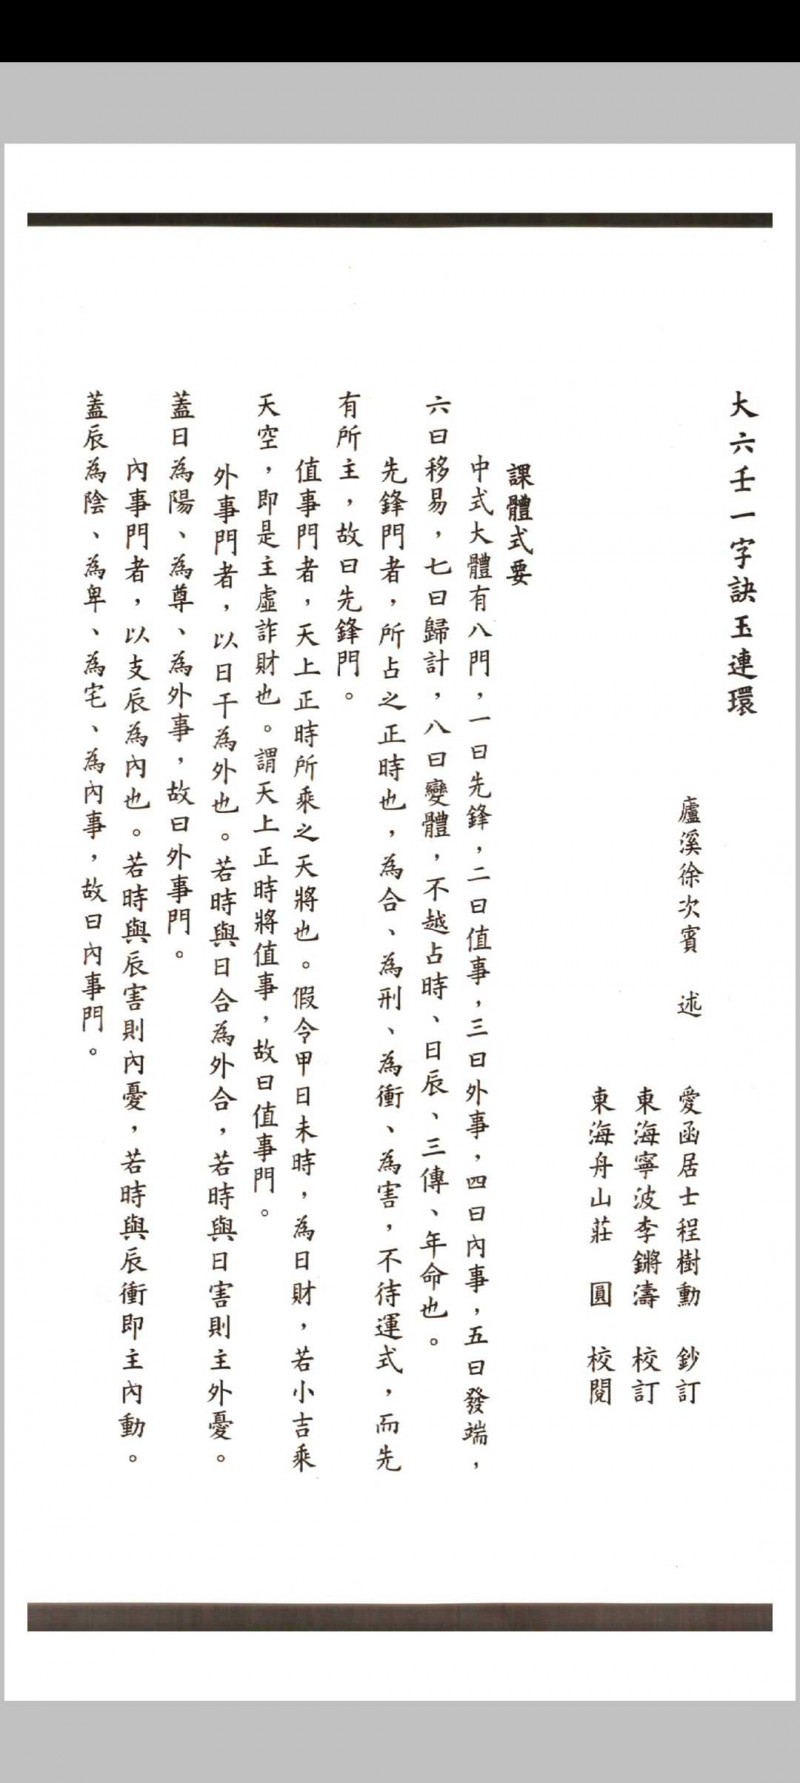 大六壬一字訣玉連環
廬溪徐次賓　述
愛函居士程樹勳　鈔訂
東海寧波李鏘濤　校訂
東海舟山莊　圓　校閱
課體式要
中式大體有八門，一曰先鋒，二曰值事，三曰外事，四曰內事，五曰發端，
六曰移易，七曰歸計，八曰變體，不越占時、日辰、三傳、年命也。
先鋒門者，所占之正時也，為合、為刑、為衝、為害，不待運式，而先
有所主，故曰先鋒門。
值事門者，天上正時所乘之天將也。假令甲日未時，為日財，若小吉乘
天空，即是主虛詐財也。謂天上正時將值事，故曰值事門。
外事門者，以日干為外也。若時與日合為外合，若時與日害則主外憂。
蓋日為陽、為尊、為外事，故曰外事門。
內事門者，以支辰為內也。若時與辰害則內憂，若時與辰衝即主內動。
蓋辰為陰、為卑、為宅、為內事，故曰內事門。